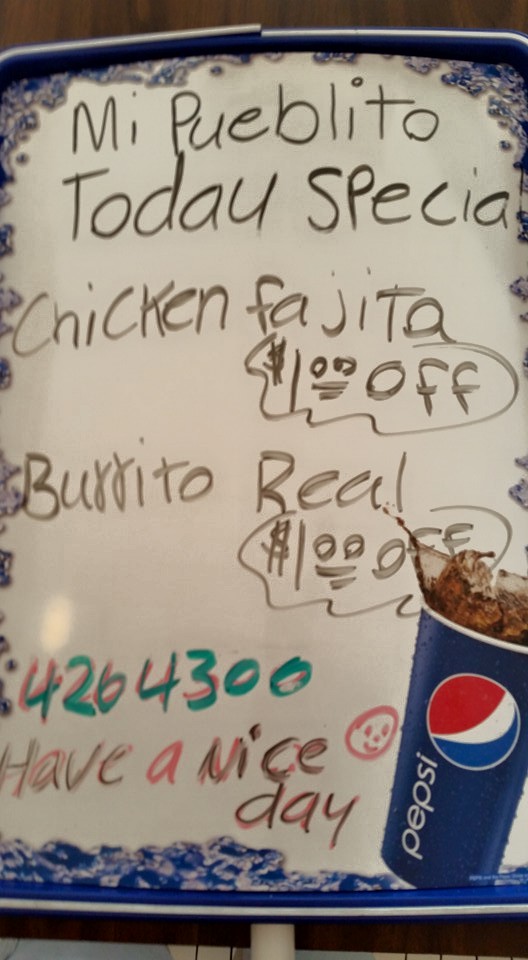 Mi Pueblito
Today Specia
Chicken fajita
$1.00 Off
Burrito Real
$1.00 Off
4264300
Have a Nice
day
pepsi